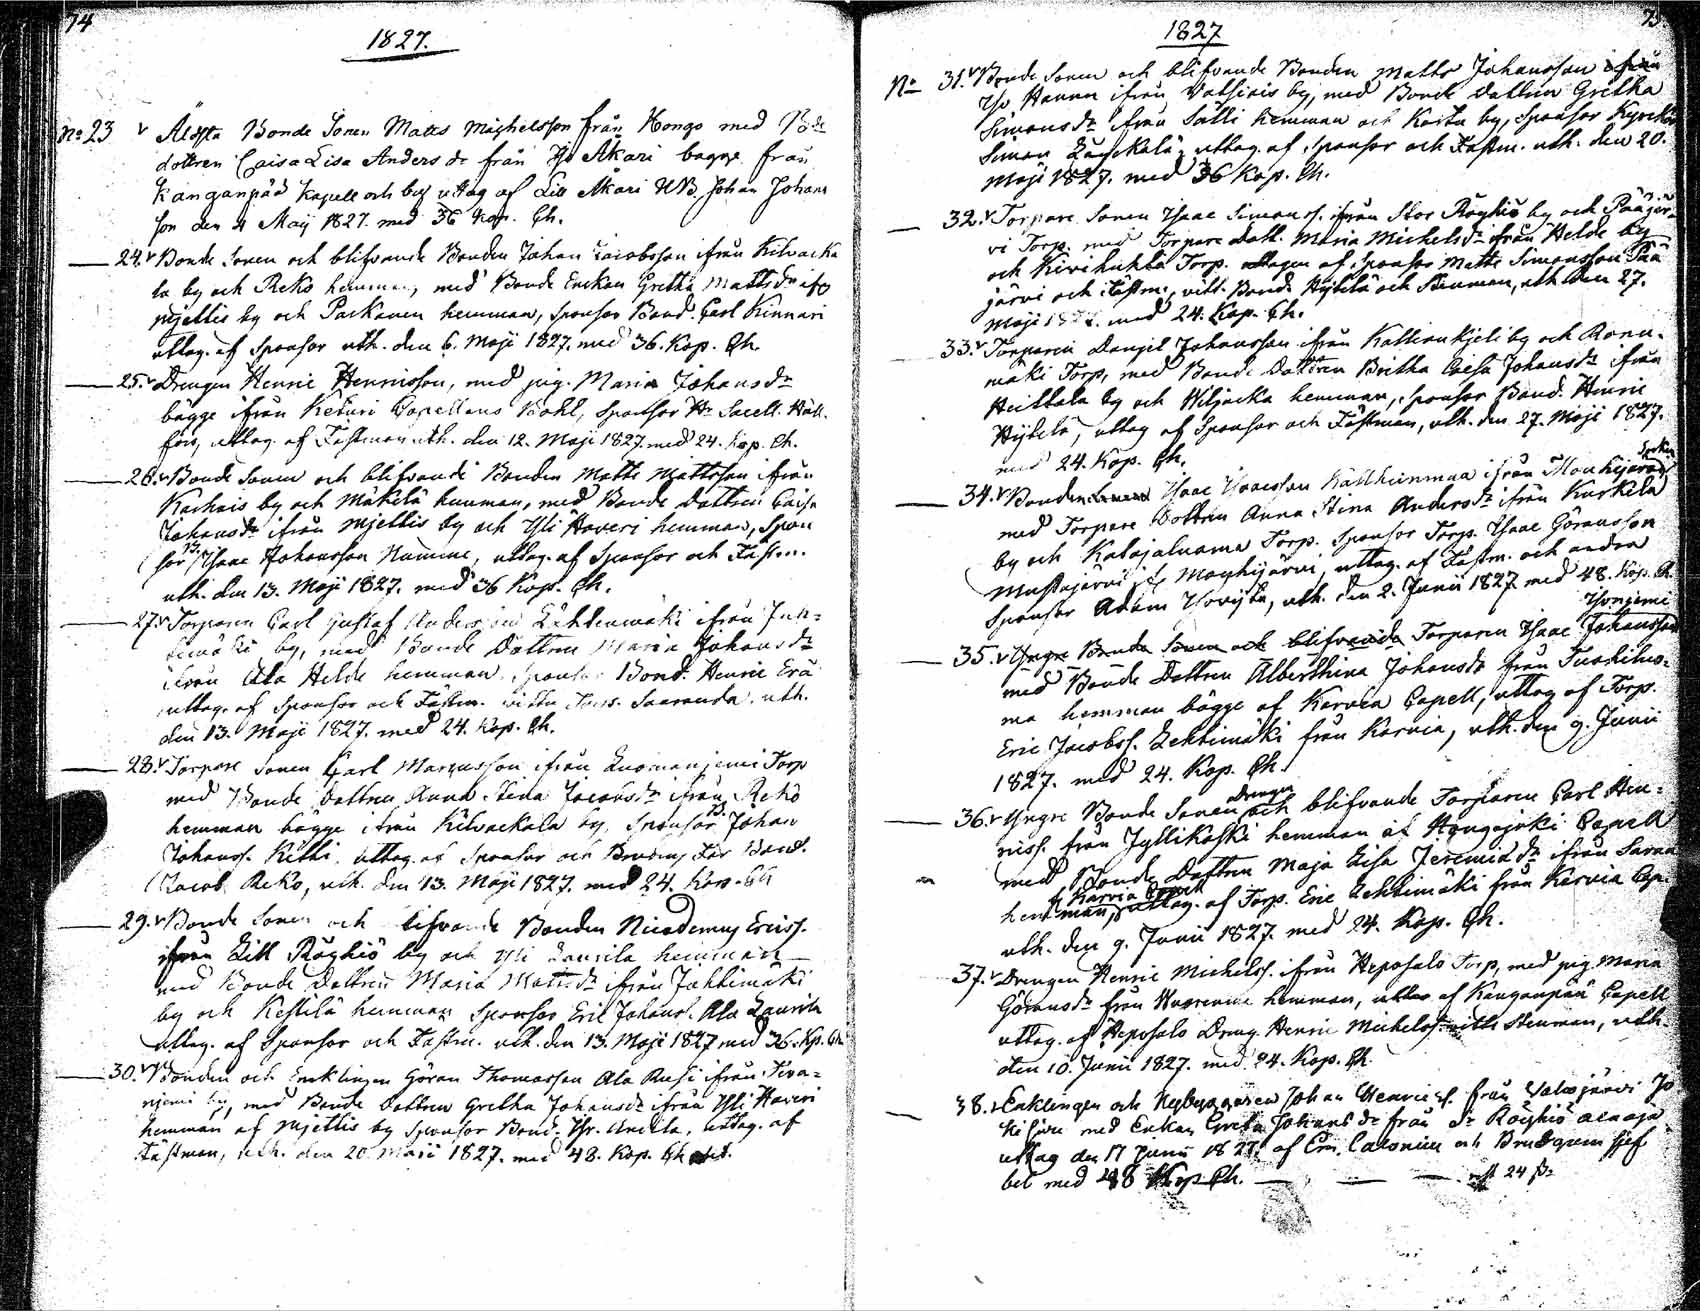 74
1827.
No 23 Äldsta Bonde Sonen Matts Michelsson från Hongo med Bde
dottren Caisa Lisa Anders dr från Yli Akari bägge från
Kanganpää Kapell och uttag af Lill Akari NB. Johan Johans
son den 4 Maij 1827. med 36 Kop. Ch.
24. Bonde Sonen och blifvande Bonden Johan Jacobsson ifrån Kilvacka
la by och Reko hemman, med Bonde Enckan Gretha Mattsdr ifr
Mjettis by och Parkanen hemman, Sponsor Bond. Carl Kinnari
uttag. af Sponsor uth. den 6. Maji 1827. med 36. Kop. Ch.
25. Drengen Henric Henricsson, med pig. Maria Johansdr
bägge ifrån Keturi Capellans Bohl, Sponsor Hr Sacell. Häll.
fors, uttag. af Fästman uth. den 12. Maji 1827. med 24. Kop. Ch.
26. Bonde Sonen och blifvande Bonden Matts Mattsson ifrån
Karhais by och Mäkelä hemman, med Bonde Dottren Caisa
Johansdr ifrån Mjettis by och Yli Haveri hemman, Spon
sor Bd. Isaac Johansson Numme, uttag. af Sponsor och Fästm.
uth. den 13. Maji 1827. med 36 Kop. Ch.
27. Torparen Carl Gustaf Andersson Lähteenmäki ifrån Juh=
timäki by, med Bonde Dottren Maria Johansdr
ifrån Ala Helde hemman, Sponsor Bond. Henric Erä
uttag. af Sponsor och Fästm. vittn Saaranda. uth.
den 13. Maji 1827. med 24. Kop. Ch.
28. Torpare Sonen Carl Marcusson ifrån Luomanjemi Torp
med Bonde Dottren Anna Stina Jacobsdr ifrån Reko
hemman bägge ifrån Kilvackala by, Sponsor Bd. Johan
Johanss. Kitti, uttag. af Sponsor och Brudens Far Bond.
Jacob Reko, uth. den 13. Maji 1827. med 24. Kop. Ch
29. Bonde Sonen och blifvande Bonden Nicodemus Ericss.
ifrån Lill Röyhiö by och Yli Laurila hemman
med Bonde Dottren Maria Mattsdr ifrån Jahtimäki
by och Kestilä hemman Sponsor Eric Johanss. Ala Laurila
uttag. af Sponsor och Fästm. uth. den 13. Maji 1827 med 36. Kp. Ch
30. Bonden och Encklingen Göran Thomasson Ala Rusi ifrån Tiva=
njemi by, med Bonde Dottren Gretha Johansdr ifrån Yli Haveri
hemman af Mjettis by Sponsor Bond. uttag. af
Fästman, uth. den 20 Maii 1827. med 48. Kop. Ch
75.
1827
No 31. Bonde Sonen och blifvande Bonden Matts Johansson ifrån
Yso Hannu ifrån Vatsiais by, med Bonde Dottren Gretha
Simonsdr ifrån Sälli hemman och Karta by, Sponsor Kyrckv
Simon uttag. af Sponsor och Fästm. uth. den 20.
Maji 1827. med 36 Kop. Ch.
32. Torpare Sonen Isaac Simonss. ifrån Stor Röyhiö by och Pääjär=
vi Torp. med Torpare Dott. Maria Michelsdr ifrån Helde by
och Kivihuhta Torp. uttagen af Sponsor Matts Simonsson Pää
järvi och Fästm., vitt. Bond. Hyttilä och Stenman, uth den 27.
Maji 1827. med 24. Kop. Ch.
33. Torparen Danjel Johansson ifrån Kallionkjeli by och Ronu=
mäki Torp, med Bonde Dottren Britha Caisa Johansdr ifrån
Heittola by och Wiljacka hemman, Sponsor Bond. Henric
Hyttelä, uttag af Sponsor och Fästman, uth. den 27. Maji 1827.
med 24. Kop. Ch.
34. Bonden Isaac Isaacsson Kallhiinmaa ifrån Mouhijärvi Socken
med Torpare Dottren Anna Stina Andersdr ifrån Kurkela
by och Katajaluoma Torp. Sponsor Torp. Isaac Göransson
Mustajärvi Mouhijärvi, uttag. af Fästm. och andra
Sponsor Adam uth. den 2. Junii 1827 med 48. Kop. Ch.
35. Yngre Bonde Sonen och blifvande Torparen Isaac Johansson Ysonjemi
med Bonde Dottren Alberthina Johansdr från Tuohiluo=
ma hemman bägge af Karvia Capell, uttag af Torp.
Eric Jacobss. Lehtimäki från Karvia, uth. den 9. Junii
1827. med 24. Kop. Ch.
36. Yngre Bonde Sonen Drengen och blifvande Torparen Carl Hen=
ricss. från Jyllikoski hemman af Hongojoki Capell
med Bonde Dottren Maja Lisa Jeremiædr ifrån Saran
hemman, af Karvia Capell uttag. af Torp. Eric Lehtimäki från Karvia Cap.
uth. den 9. Junii 1827. med 24. Kop. Ch.
37. Drengen Henric Michelss. ifrån Heposalo Torp, med pig Maria
Göransdr från hemman, af Kanganpää Capell
uttag. af Heposalo Dreng. Henric Michelss. vitts Stenman, uth.
den 10. Junii 1827. med 24. Kop. Ch
38. Enklingen och Nybyggaren Johan Henrics. från Valvjärvi Jo
kisivu med Enkan Greta Johans dr från St Röyhiö alaaja
uttag den 17 Junii 1827 af Em. Calonius och Brudgum sjef
bet med 48 Kop Ch. — — — 24 β